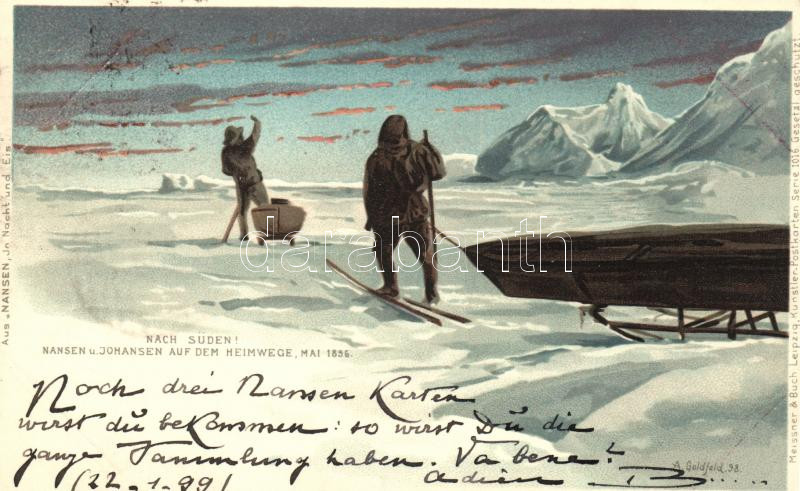 Aus „NANSEN, In Nacht und Eis"
Meissner & Buch Leipzig, Künstler-Postkarten Serie 1016 Gesetzl. geschützt.
darabanth
NACH SÜDEN!
NANSEN u. JOHANSEN AUF DEM HEIMWEGE, MAI 1896.
Noch drei Nansen Karten
wirst du bekommen: so wirst Du die
ganze Sammlung haben. Va bene?
(22-1-99) adieu B.....
A. Goldfeld 98.